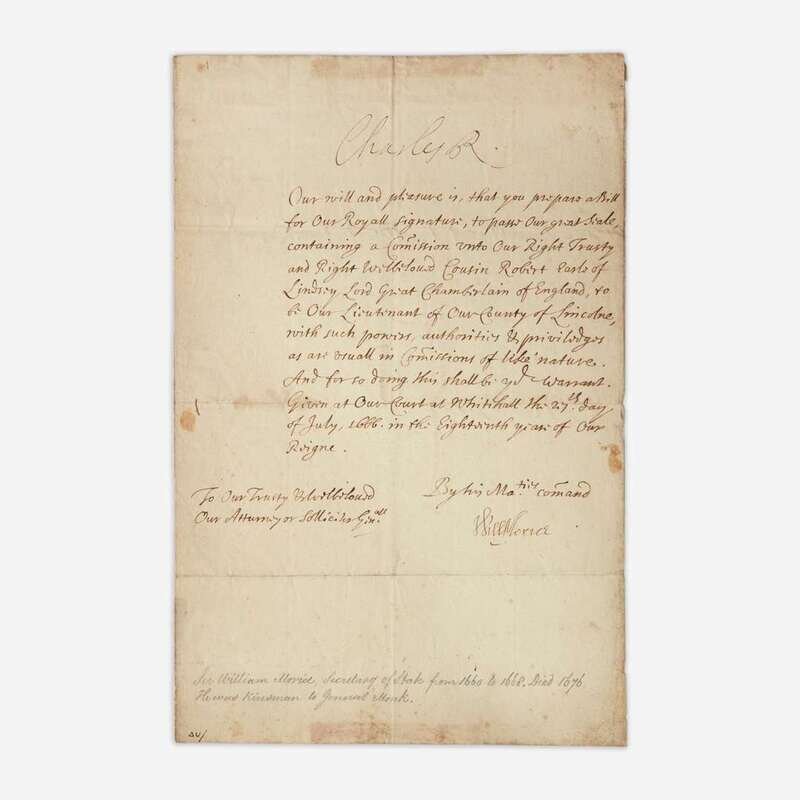 Charles R.
Our will and pleasure is, that you prepare a Bill
for Our Royall Signature, to passe Our great Seale,
containing a Com̃ission vnto Our Right Trusty
and Right Welbeloued Cousin Robert Earle of
Lindsey Lord Great Chamberlain of England, to
be Our Lieutenant of Our County of Lincolne,
with such powers, authorities & priviledges
as are usuall in Com̃issions of like nature.
And for so doing this shall be yor. Warrant.
Given at Our Court at Whitehall the 27th. day
of July, 1666. in the Eighteenth yeare of Our
Reigne.
By his Ma:ties com̃and
Will Morice
To Our Trusty & Welbeloued
Our Attorney or Solliciter Gen:all
Sir William Morice, Secretary of State from 1660 to 1668. Died 1676
He was Kinsman to General Monk.